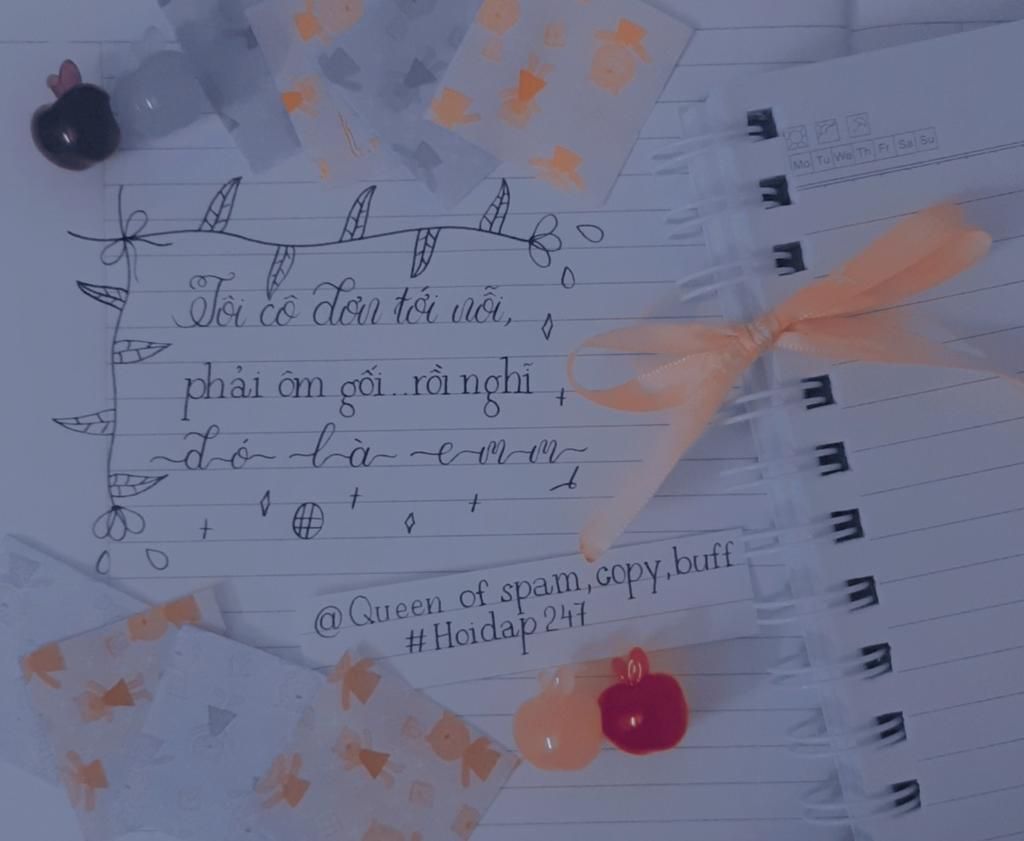 Mo Tu We Th Fr Sa Su
Tôi cô đơn tới nỗi,
phải ôm gối..rồi nghĩ
~đó~ là ~emm~
@Queen of spam,copy,buff
#Hoidap247